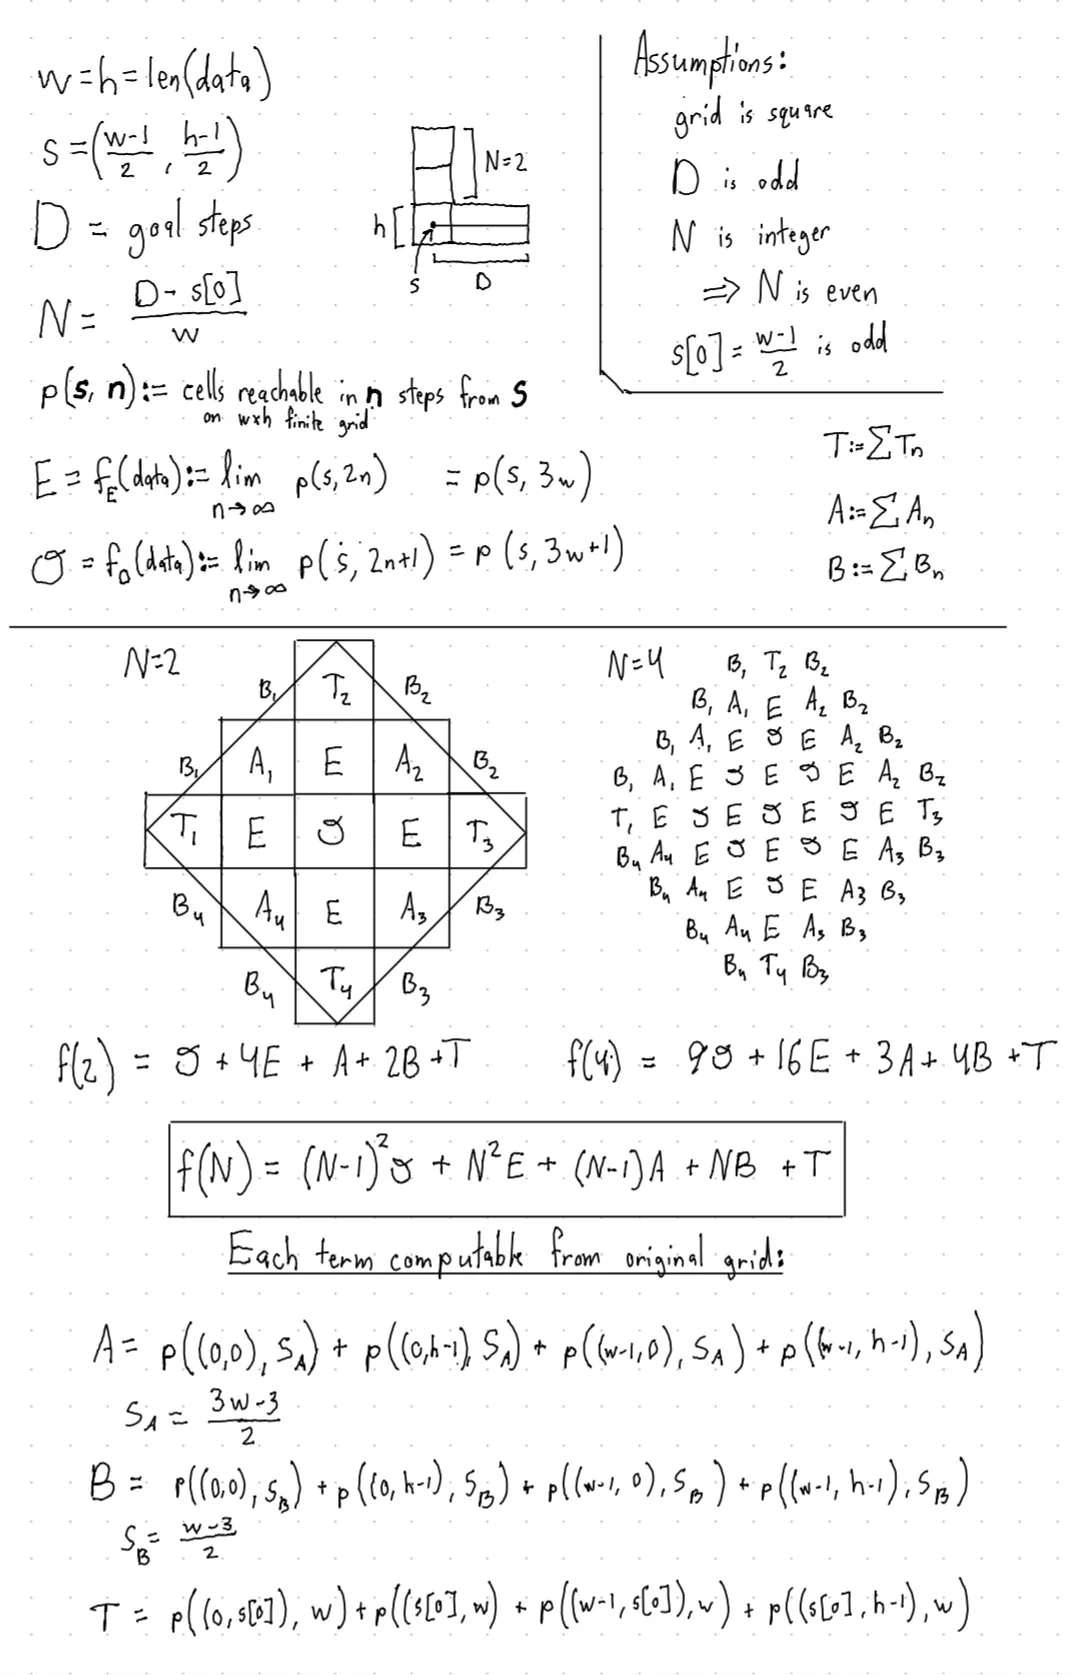 w=h=len(data)
s=(w-1/2, h-1/2)
D = goal steps
N= D-s[0]/w
p(s, n):= cells reachable in n steps from s
on wxh finite grid
E = f_E(data):= lim n→∞ p(s,2n) = p(s,3w)
O = f_O(data):= lim n→∞ p(s,2n+1) = p(s,3w+1)
N=2
h
s
D
Assumptions:
grid is square
D is odd
N is integer
⇒ N is even
s[0]= w-1/2 is odd
T:=∑T_n
A:=∑A_n
B:=∑B_n
N=2
B₁ T₂ B₂
B₁ A₁ E A₂ B₂
T₁ E O E T₃
B₄ A₄ E A₃ B₃
B₄ T₄ B₃
N=4
B₁ T₂ B₂
B₁ A₁ E A₂ B₂
B₁ A₁ E O E A₂ B₂
B₁ A₁ E O E O E A₂ B₂
T₁ E O E O E O E T₃
B₄ A₄ E O E O E A₃ B₃
B₄ A₄ E O E A₃ B₃
B₄ A₄ E A₃ B₃
B₄ T₄ B₃
f(2) = O+4E + A+ 2B+T
f(4) = 9O+16E + 3A+ 4B +T
f(N) = (N-1)²O + N²E + (N-1)A + NB + T
Each term computable from original grid:
A= p((0,0), S_A) + p((0,h-1), S_A) + p((w-1,0), S_A) + p((w-1, h-1), S_A)
S_A = 3w-3/2
B = p((0,0), S_B) + p((0, h-1), S_B) + p((w-1, 0), S_B) + p((w-1, h-1), S_B)
S_B = w-3/2
T = p((0,s[0]), w) + p((s[0], w) + p((w-1, s[0]), w) + p((s[0], h-1), w)